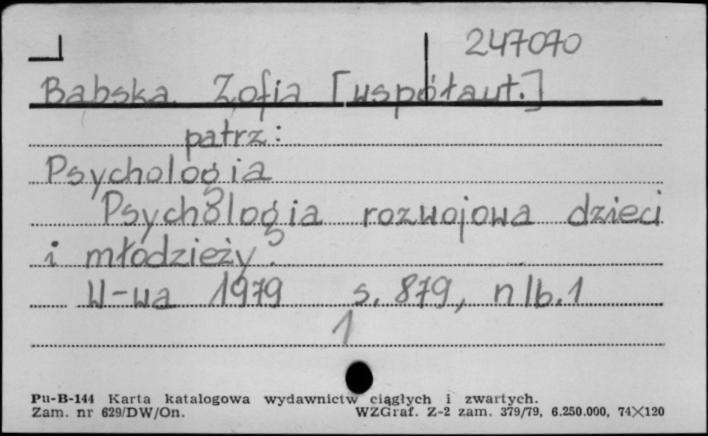 247070
Babska Zofia [współaut.]
patrz:
Psychologia
Psychologia rozwojowa dzieci
i młodzieży.
W-wa 1979 s. 879, nlb.1
1
Pu-B-144 Karta katalogowa wydawnictw ciągłych i zwartych.
Zam. nr 629/DW/On. WZGraf. Z-2 zam. 379/79, 6.250.000, 74×120